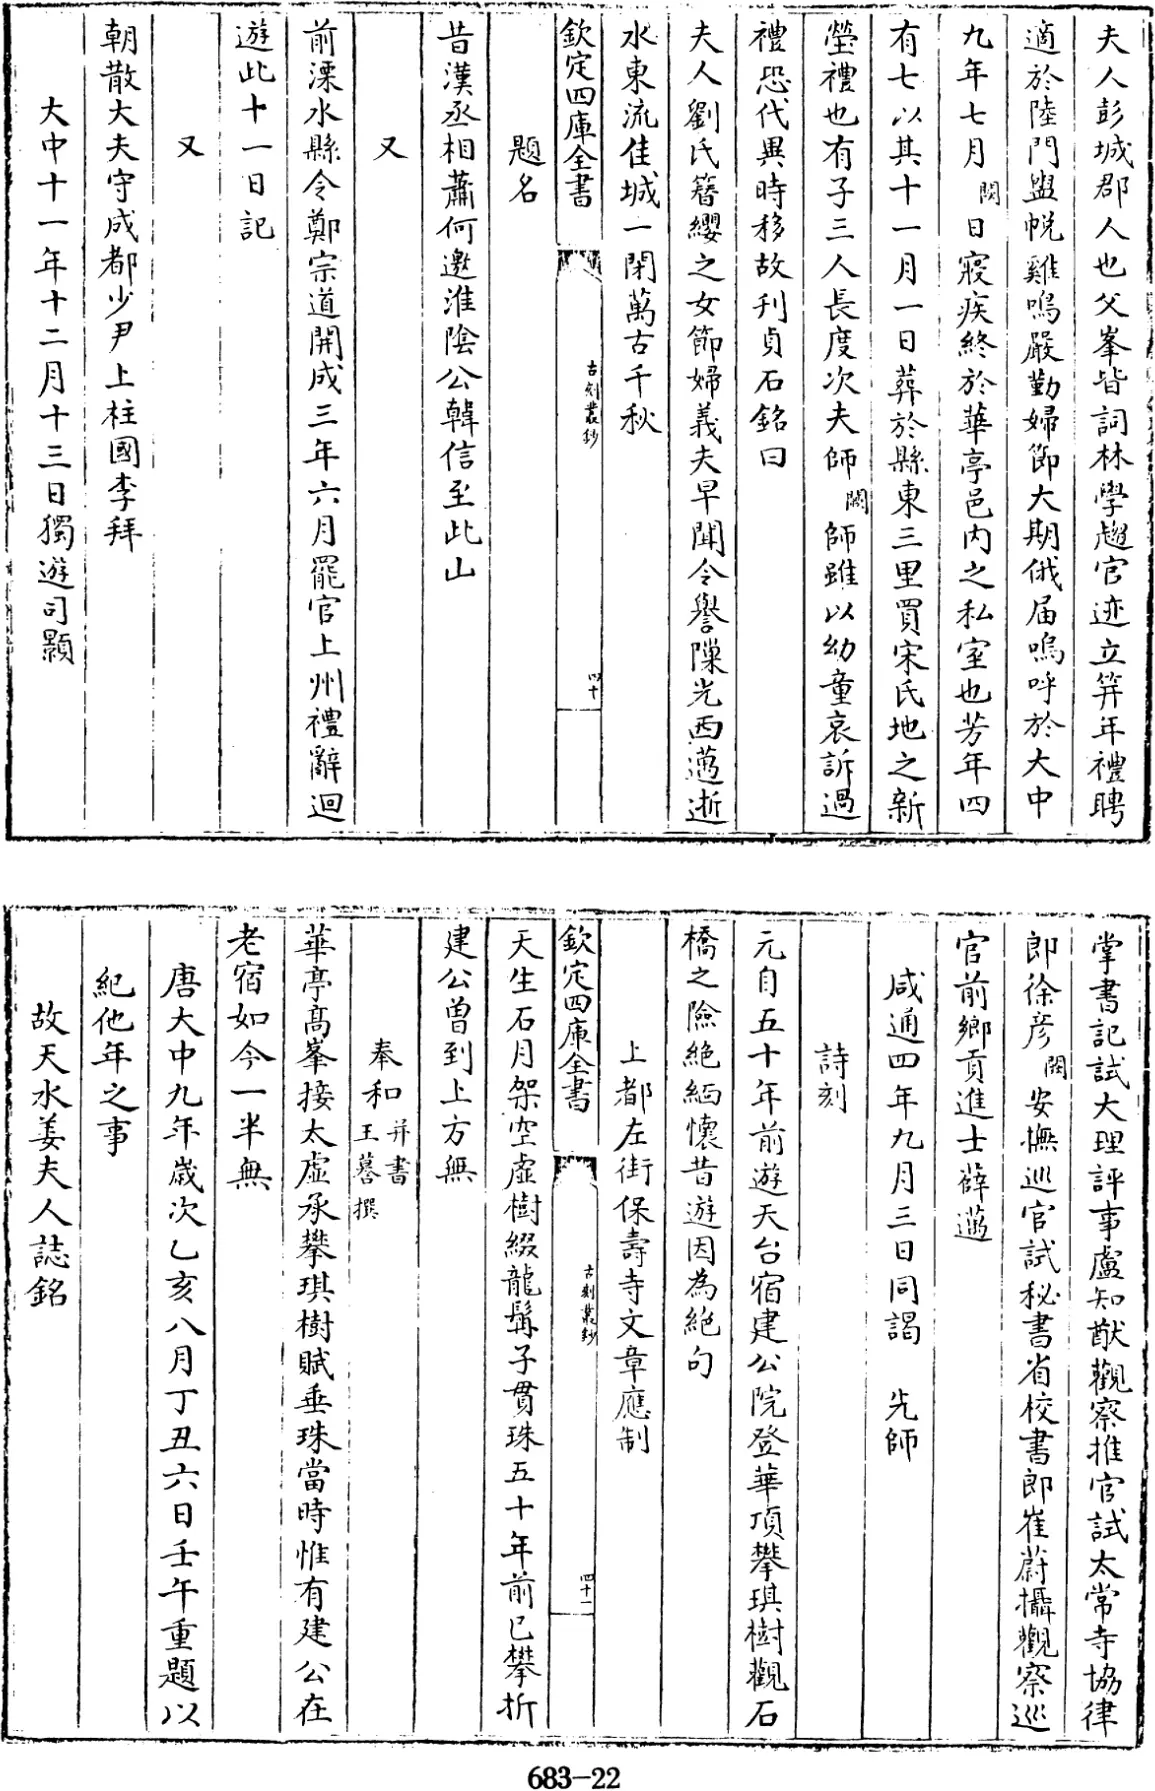 夫人彭城郡人也父峯皆詞林學趨官迹立筓年禮聘
適於陸門盥帨雞鳴嚴勤婦節大期俄届嗚呼於大中
九年七月闕日寢疾終於華亭邑内之私室也芳年四
有七以其十一月一日葬於縣東三里買宋氏地之新
塋禮也有子三人長度次夫師闕師雖以幼童哀訴過
禮恐代異時移故刋貞石銘曰
夫人劉氏簪纓之女節婦義夫早聞令譽隟光西邁逝
水東流佳城一閉萬古千秋
欽定四庫全書 古刻叢鈔 四十
題名
昔漢丞相蕭何邀淮陰公韓信至此山
又
前溧水縣令鄭宗道開成三年六月罷官上州禮辭迴
遊此十一日記
又
朝散大夫守成都少尹上柱國李拜
大中十一年十二月十三日獨遊司顥
掌書記試大理評事盧知猷觀察推官試太常寺協律
郎徐彦闕安撫巡官試秘書省校書郎崔蔚攝觀察巡
官前鄉貢進士薛邁
咸通四年九月三日同謁 先師
詩刻
元自五十年前遊天台宿建公院登華頂攀琪樹觀石
橋之險絶緬懷昔遊因為絶句
上都左街保壽寺文章應制
欽定四庫全書 古刻叢鈔 四十一
天生石月架空虛樹綴龍髯子貫珠五十年前已攀折
建公曽到上方無
奉和 并書 王 撰
華亭高峯接太虛承攀琪樹賦垂珠當時惟有建公在
老宿如今一半無
唐大中九年歲次乙亥八月丁丑六日壬午重題以
紀他年之事
故天水姜夫人誌銘
683-22